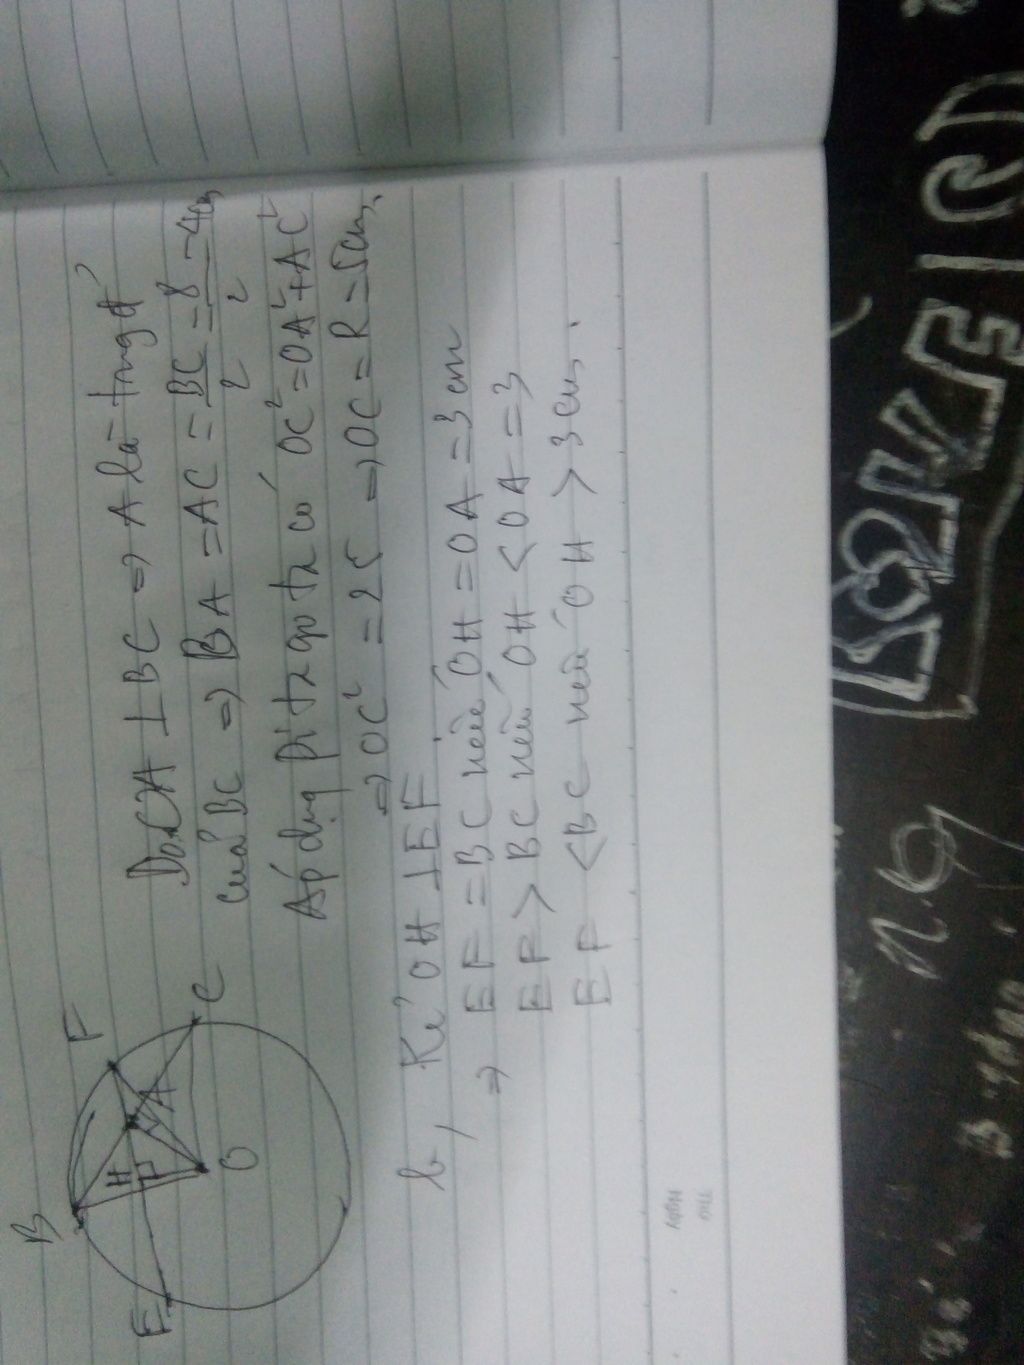 B
F
E
H
A
C
O
Do OA ⊥ BC => A là trung đ'
của BC => BA = AC = BC/2 = 8/2 = 4cm
Áp dụng pi ta go ta có OC² = OA² + AC²
=> OC² = 25 => OC = R = 5cm.
b, Kẻ OH ⊥ EF.
=> EF = BC nếu OH = OA = 3 cm
EF > BC nếu OH < OA = 3
EF < BC nếu OH > 3 cm.
Thứ
Ngày